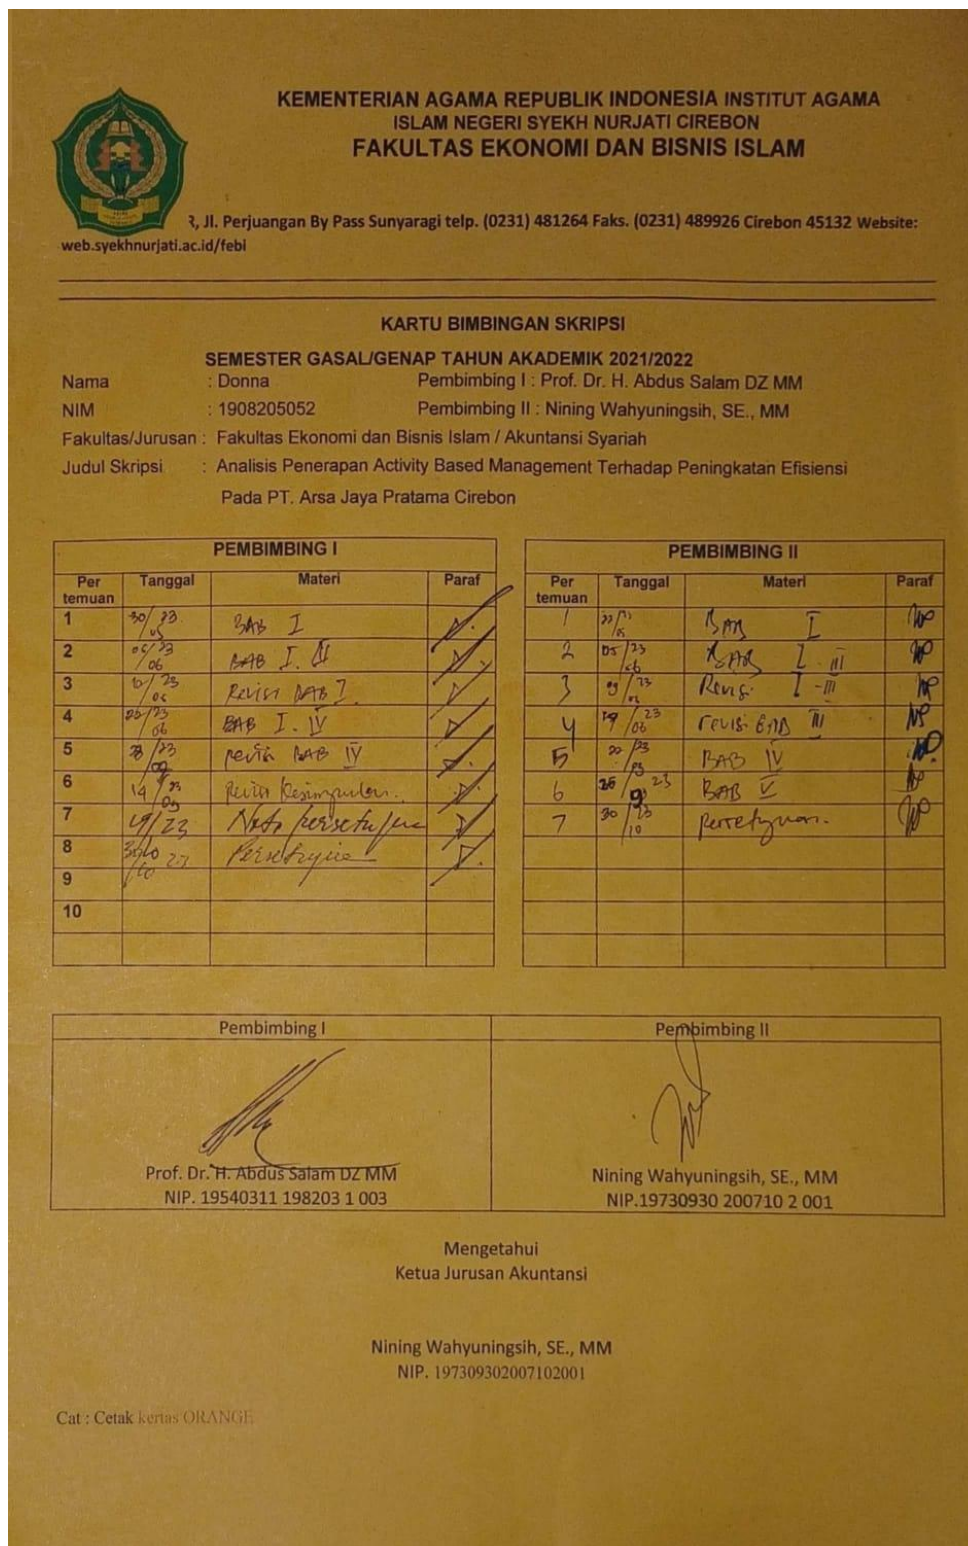 KEMENTERIAN AGAMA REPUBLIK INDONESIA INSTITUT AGAMA
ISLAM NEGERI SYEKH NURJATI CIREBON
FAKULTAS EKONOMI DAN BISNIS ISLAM
R, Jl. Perjuangan By Pass Sunyaragi telp. (0231) 481264 Faks. (0231) 489926 Cirebon 45132 Website:
web.syekhnurjati.ac.id/febi
KARTU BIMBINGAN SKRIPSI
SEMESTER GASAL/GENAP TAHUN AKADEMIK 2021/2022
Nama : Donna Pembimbing I : Prof. Dr. H. Abdus Salam DZ MM
NIM : 1908205052 Pembimbing II : Nining Wahyuningsih, SE., MM
Fakultas/Jurusan : Fakultas Ekonomi dan Bisnis Islam / Akuntansi Syariah
Judul Skripsi : Analisis Penerapan Activity Based Management Terhadap Peningkatan Efisiensi
Pada PT. Arsa Jaya Pratama Cirebon
PEMBIMBING I
Per temuan Tanggal Materi Paraf
1 BAB I
2 BAB I. III
3 Revisi BAB I
4 BAB I. IV
5 revisi BAB IV
6 Revisi Kesimpulan.
7 Nota persetujuan
8 Persetujuan
9
10
PEMBIMBING II
Per temuan Tanggal Materi Paraf
1 BAB I
2 05/23 06 BAB I - III
3 Revisi I - III
4 19/23 06 revisi BAB III
5 BAB IV
6 BAB V
7 30/23 10 persetujuan.
Pembimbing I Pembimbing II
Prof. Dr. H. Abdus Salam DZ MM Nining Wahyuningsih, SE., MM
NIP. 19540311 198203 1 003 NIP.19730930 200710 2 001
Mengetahui
Ketua Jurusan Akuntansi
Nining Wahyuningsih, SE., MM
NIP. 197309302007102001
Cat : Cetak kertas ORANGE